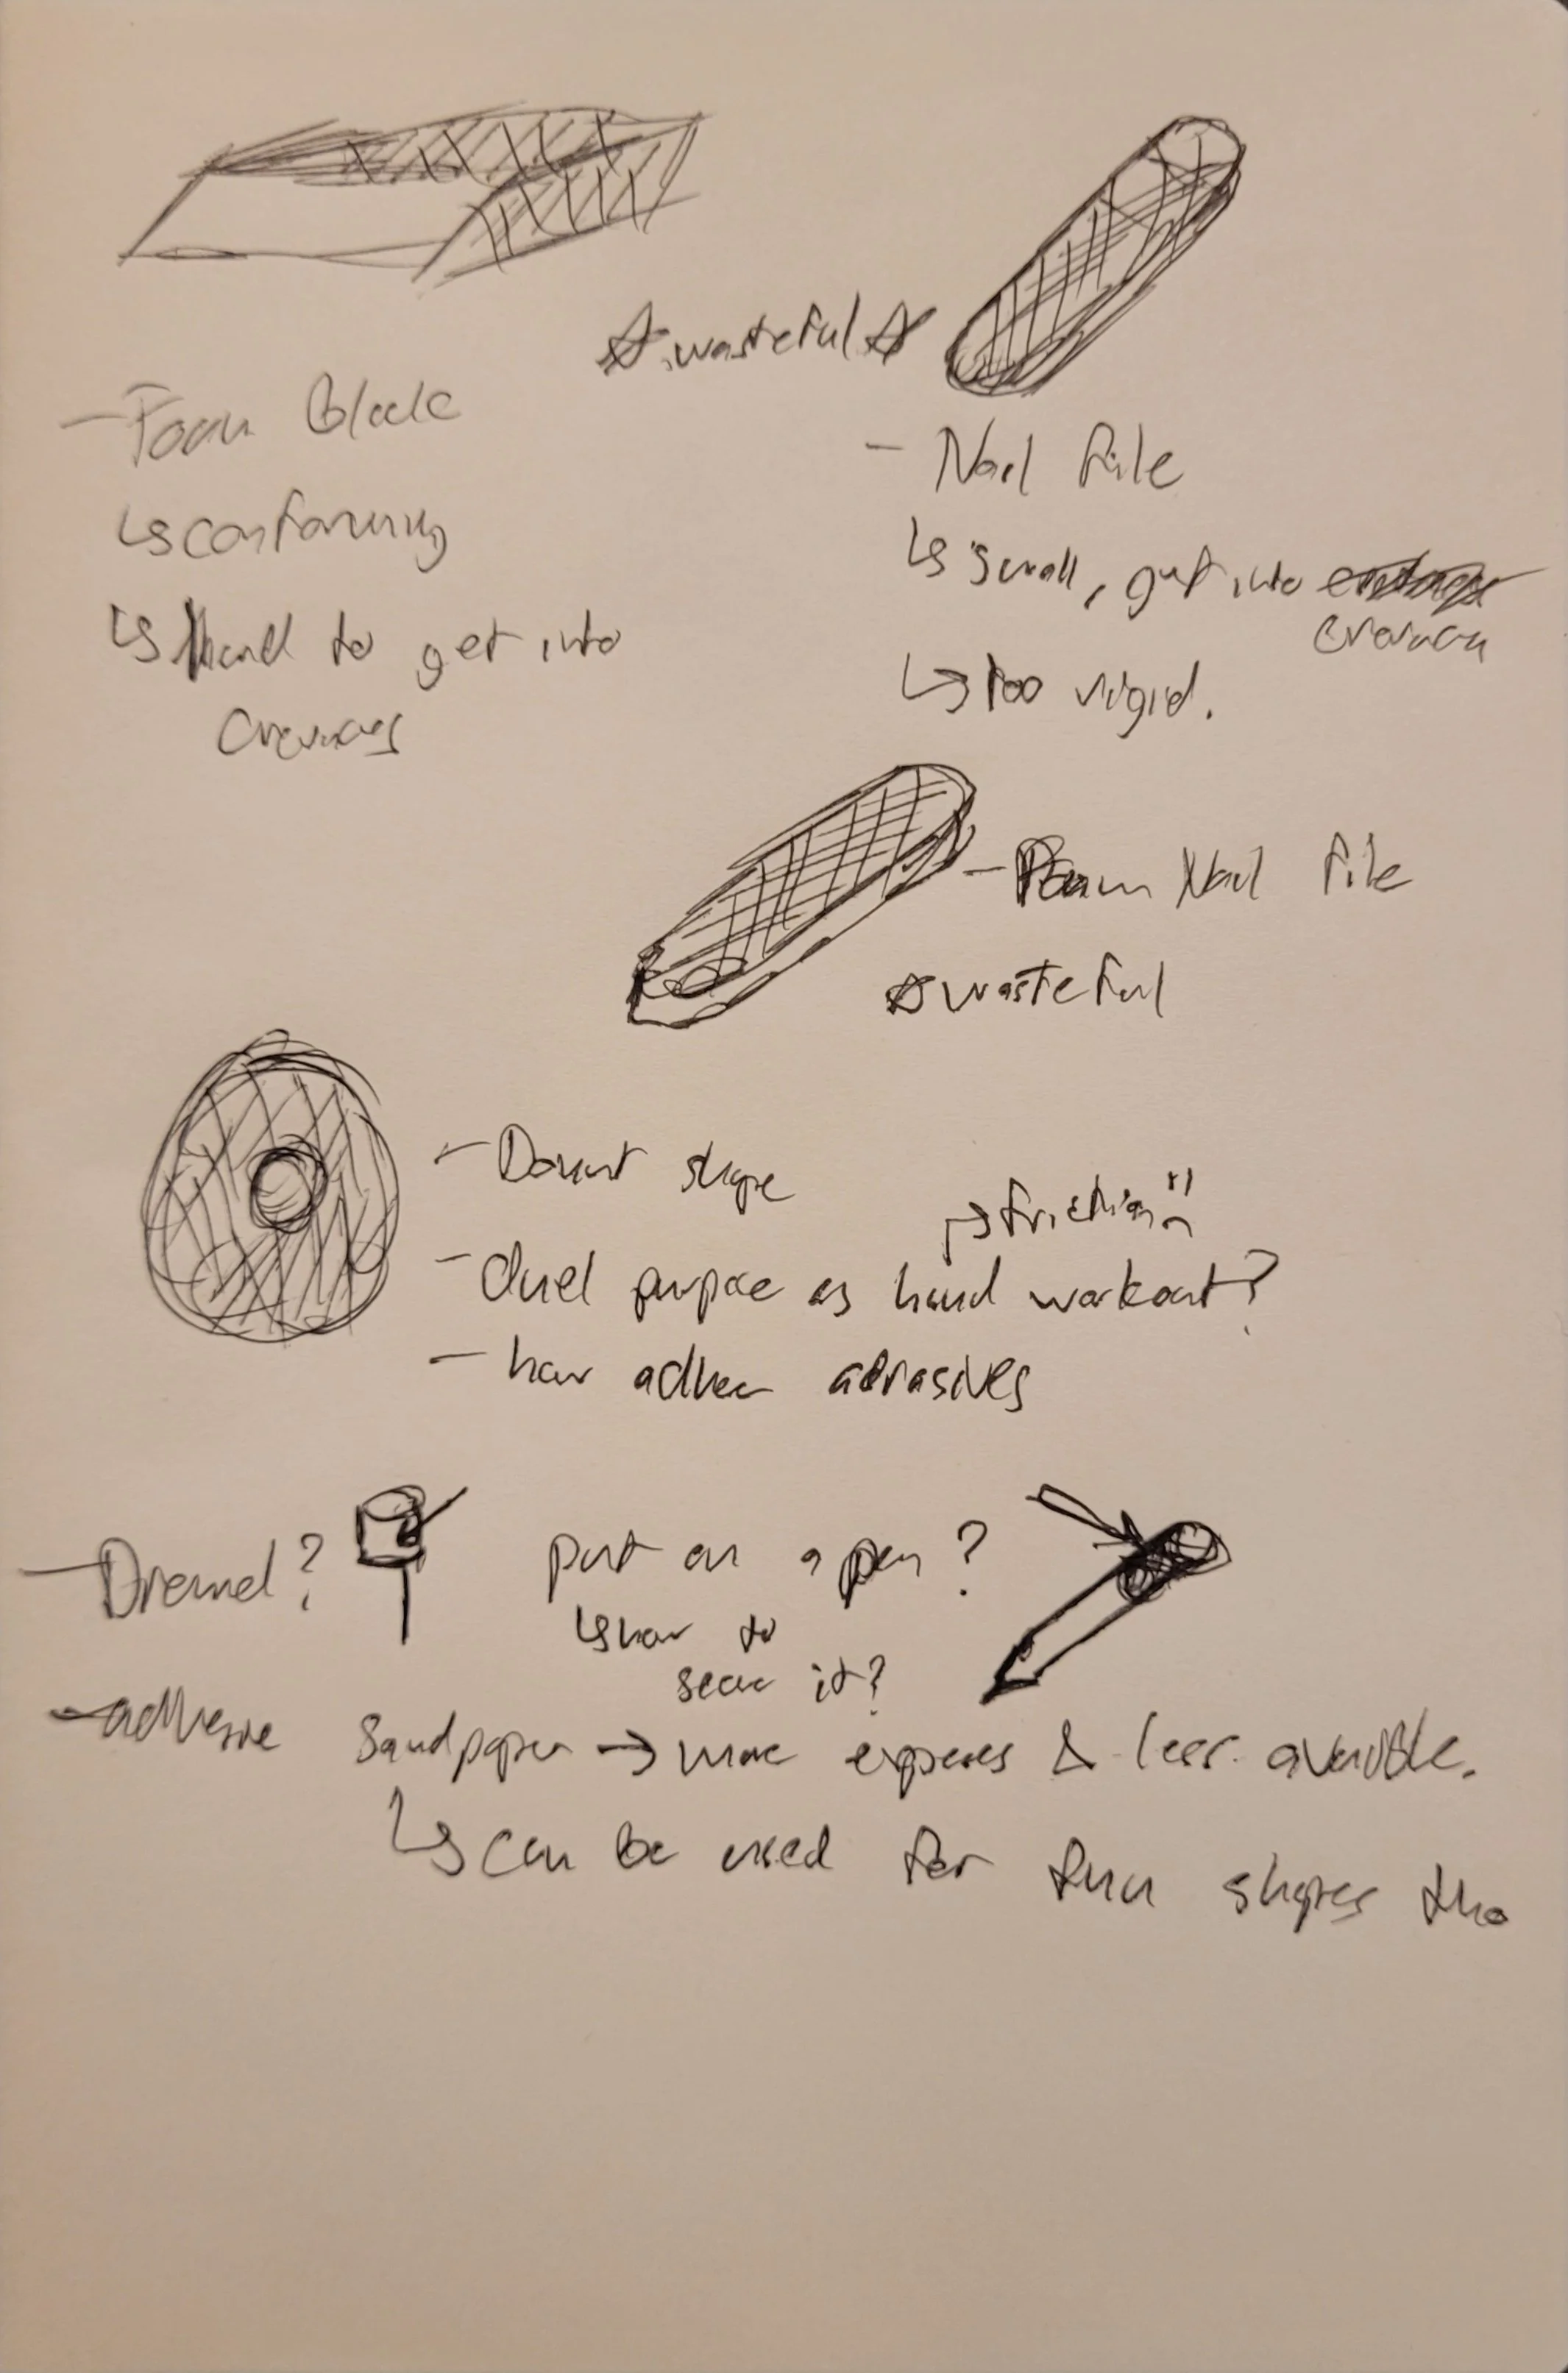 ☆ wasteful ☆
- Foam Block
↳ conforming
↳ Hard to get into
crevices
- Nail file
↳ small, get into
↳ too rigid.
- Foam Nail file
☆ wasteful
- Donut shape
→ friction
- duel purpose as hand workout?
- how adhere abrasives
- Dremel?
put on a pen?
↳ how to
secure it?
- adhesive Sandpaper → more expensive & less available.
↳ can be used for fun shapes tho